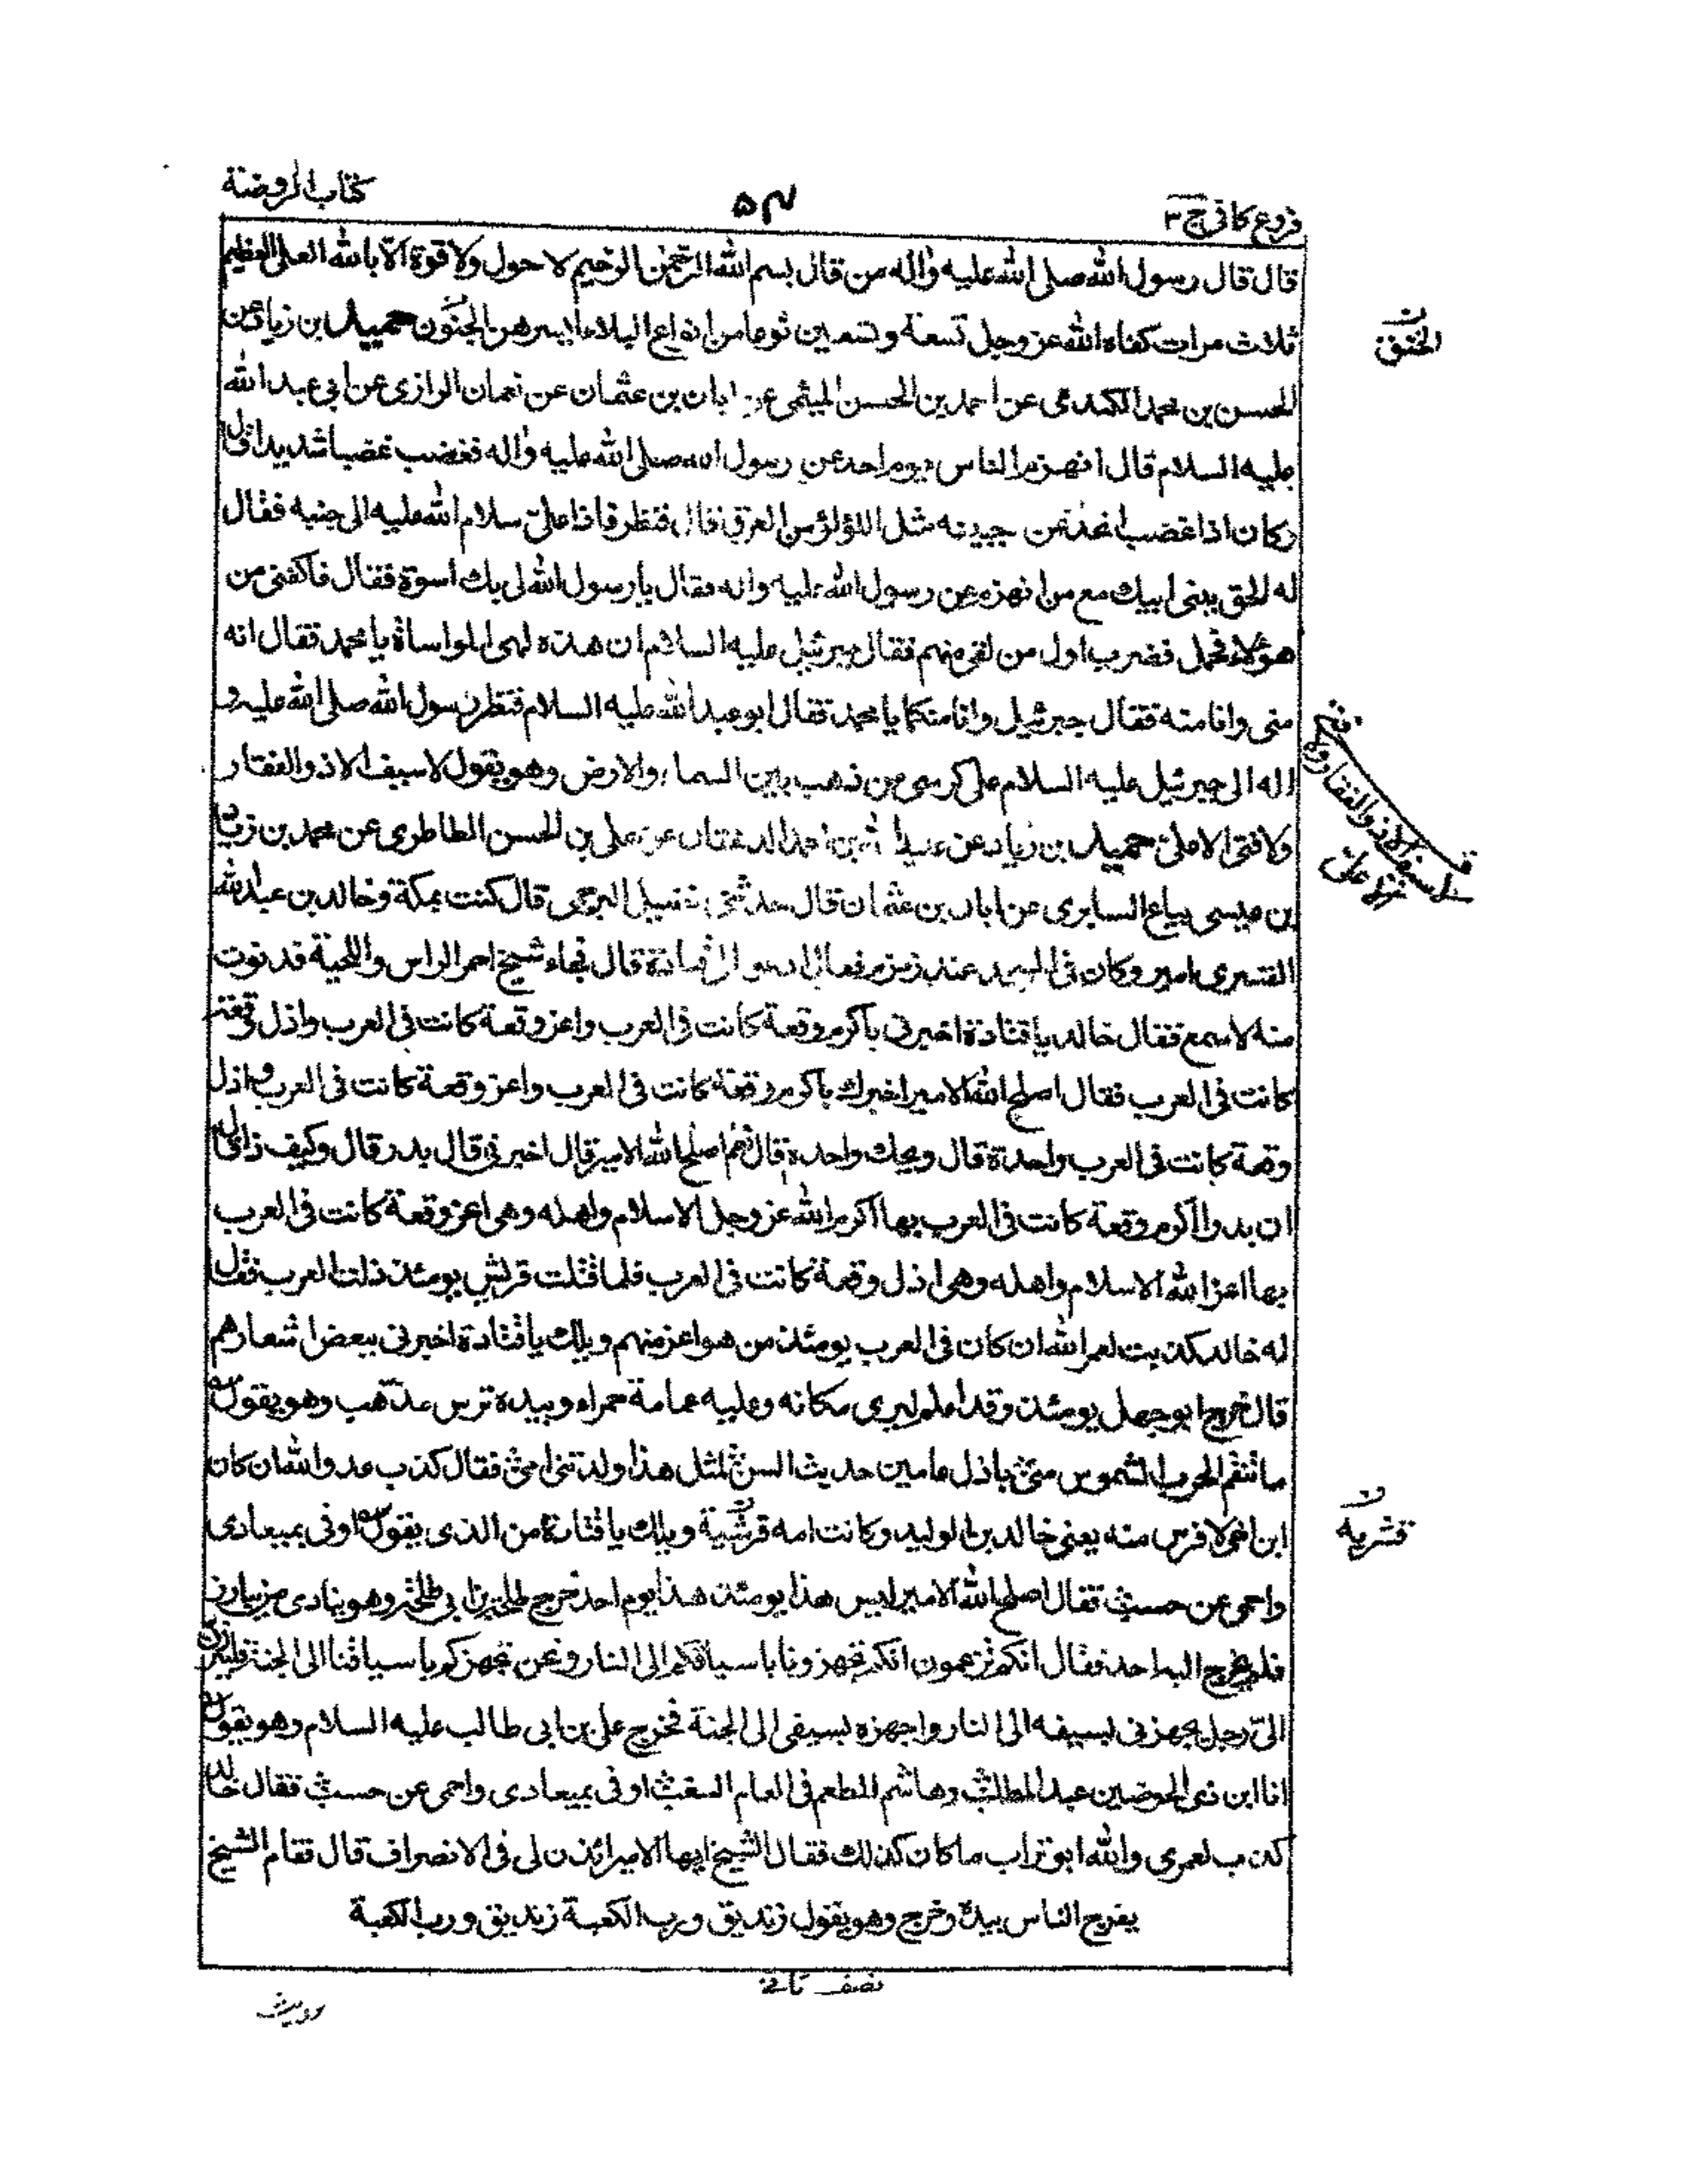 فروع كافي ج ٣
٥٣
كتاب الروضة
قال قال رسول الله صلى الله عليه واله من قال بسم الله الرحمن الرحيم لا حول ولا قوة الا بالله العلي العظيم
ثلاث مرات كفاه الله عز وجل تسعة وتسعين نوعا من انواع البلاء ايسرهن الجنون حميد بن زياد عن
الخنق
الحسن بن محمد الكندي عن احمد بن الحسن الميثمي عن ابان بن عثمان عن نعمان الرازي عن ابي عبد الله
عليه السلام قال انهزم الناس يوم احد عن رسول الله صلى الله عليه واله فغضب غضبا شديدا قال
وكان اذا غضب انحدر عن جبينه مثل اللؤلؤ من العرق قال فنظر فاذا علي سلام الله عليه الى جنبه فقال
له الحق ببني ابيك مع من انهزم عن رسول الله عليه واله فقال يا رسول الله لي بك اسوة فقال فاكفني من
هؤلاء فحمل فضرب اول من لقي منهم فقال جبرئيل عليه السلام ان هذه لهي المواساة يا محمد فقال انه
مني وانا منه فقال جبرئيل وانا منكما يا محمد فقال ابو عبد الله عليه السلام فنظر رسول الله صلى الله عليه و
اله الى جبرئيل عليه السلام على كرسي من ذهب بين السماء والارض وهو يقول لا سيف الا ذو الفقار
ولا فتى الا علي حميد بن زياد عن عبيد الله بن احمد الدهقان عن علي بن الحسن الطاطري عن محمد بن زياد
بن عيسى بياع السابري عن ابان بن عثمان قال حدثني فضيل البرجمي قال كنت بمكة وخالد بن عبد الله
القسري امير وكان في المسجد عند زمزم فقال ادعوا لي قتادة قال فجاء شيخ احمر الراس واللحية فدنوت
منه لاسمع فقال خالد يا قتادة اخبرني باكرم وقعة كانت في العرب واعز وقعة كانت في العرب واذل وقعة
كانت في العرب فقال اصلح الله الامير اخبرك باكرم وقعة كانت في العرب واعز وقعة كانت في العرب واذل
وقعة كانت في العرب واحدة قال ويحك واحدة قال نعم اصلح الله الامير قال اخبرني قال بدر قال وكيف ذا قال
ان بدرا اكرم وقعة كانت في العرب بها اكرم الله عز وجل الاسلام واهله وهي اعز وقعة كانت في العرب
بها اعز الله الاسلام واهله وهي اذل وقعة كانت في العرب فلما قتلت قريش يومئذ ذلت العرب فقال
له خالد كذبت لعمر الله ان كان في العرب يومئذ من هو اعز منهم ويلك يا قتادة اخبرني ببعض اشعارهم
قال خرج ابو جهل يومئذ وقد اعلم ليرى مكانه وعليه عمامة حمراء وبيده ترس مذهب وهو يقول
ما تنقم الحرب الشموس مني باذل عامين حديث السن لمثل هذا ولدتني امي فقال كذب عدو الله ان كان
ابن اخي لا فرس منه يعني خالد بن الوليد وكانت امه قرشية ويلك يا قتادة من الذي يقول اوفي بميعادي
قشرية
واحمي عن حسب فقال اصلح الله الامير ليس هذا يومئذ هذا يوم احد خرج طلحة بن ابي طلحة وهو ينادي من يبارز
فلم يخرج اليه احد فقال انكم تزعمون انكم تجهزونا باسيافكم الى النار ونحن نجهزكم باسيافنا الى الجنة فليبرزن
الي رجل يجهزني بسيفه الى النار واجهزه بسيفي الى الجنة فخرج علي بن ابي طالب عليه السلام وهو يقول
انا ابن ذي الحوضين عبد المطلب وهاشم المطعم في العام السغب اوفي بميعادي واحمي عن حسب فقال خالد
كذب لعمري والله ابو تراب ما كان كذلك فقال الشيخ ايها الامير ائذن لي في الانصراف قال فقام الشيخ
يفرج الناس بيده وخرج وهو يقول زنديق ورب الكعبة زنديق ورب الكعبة